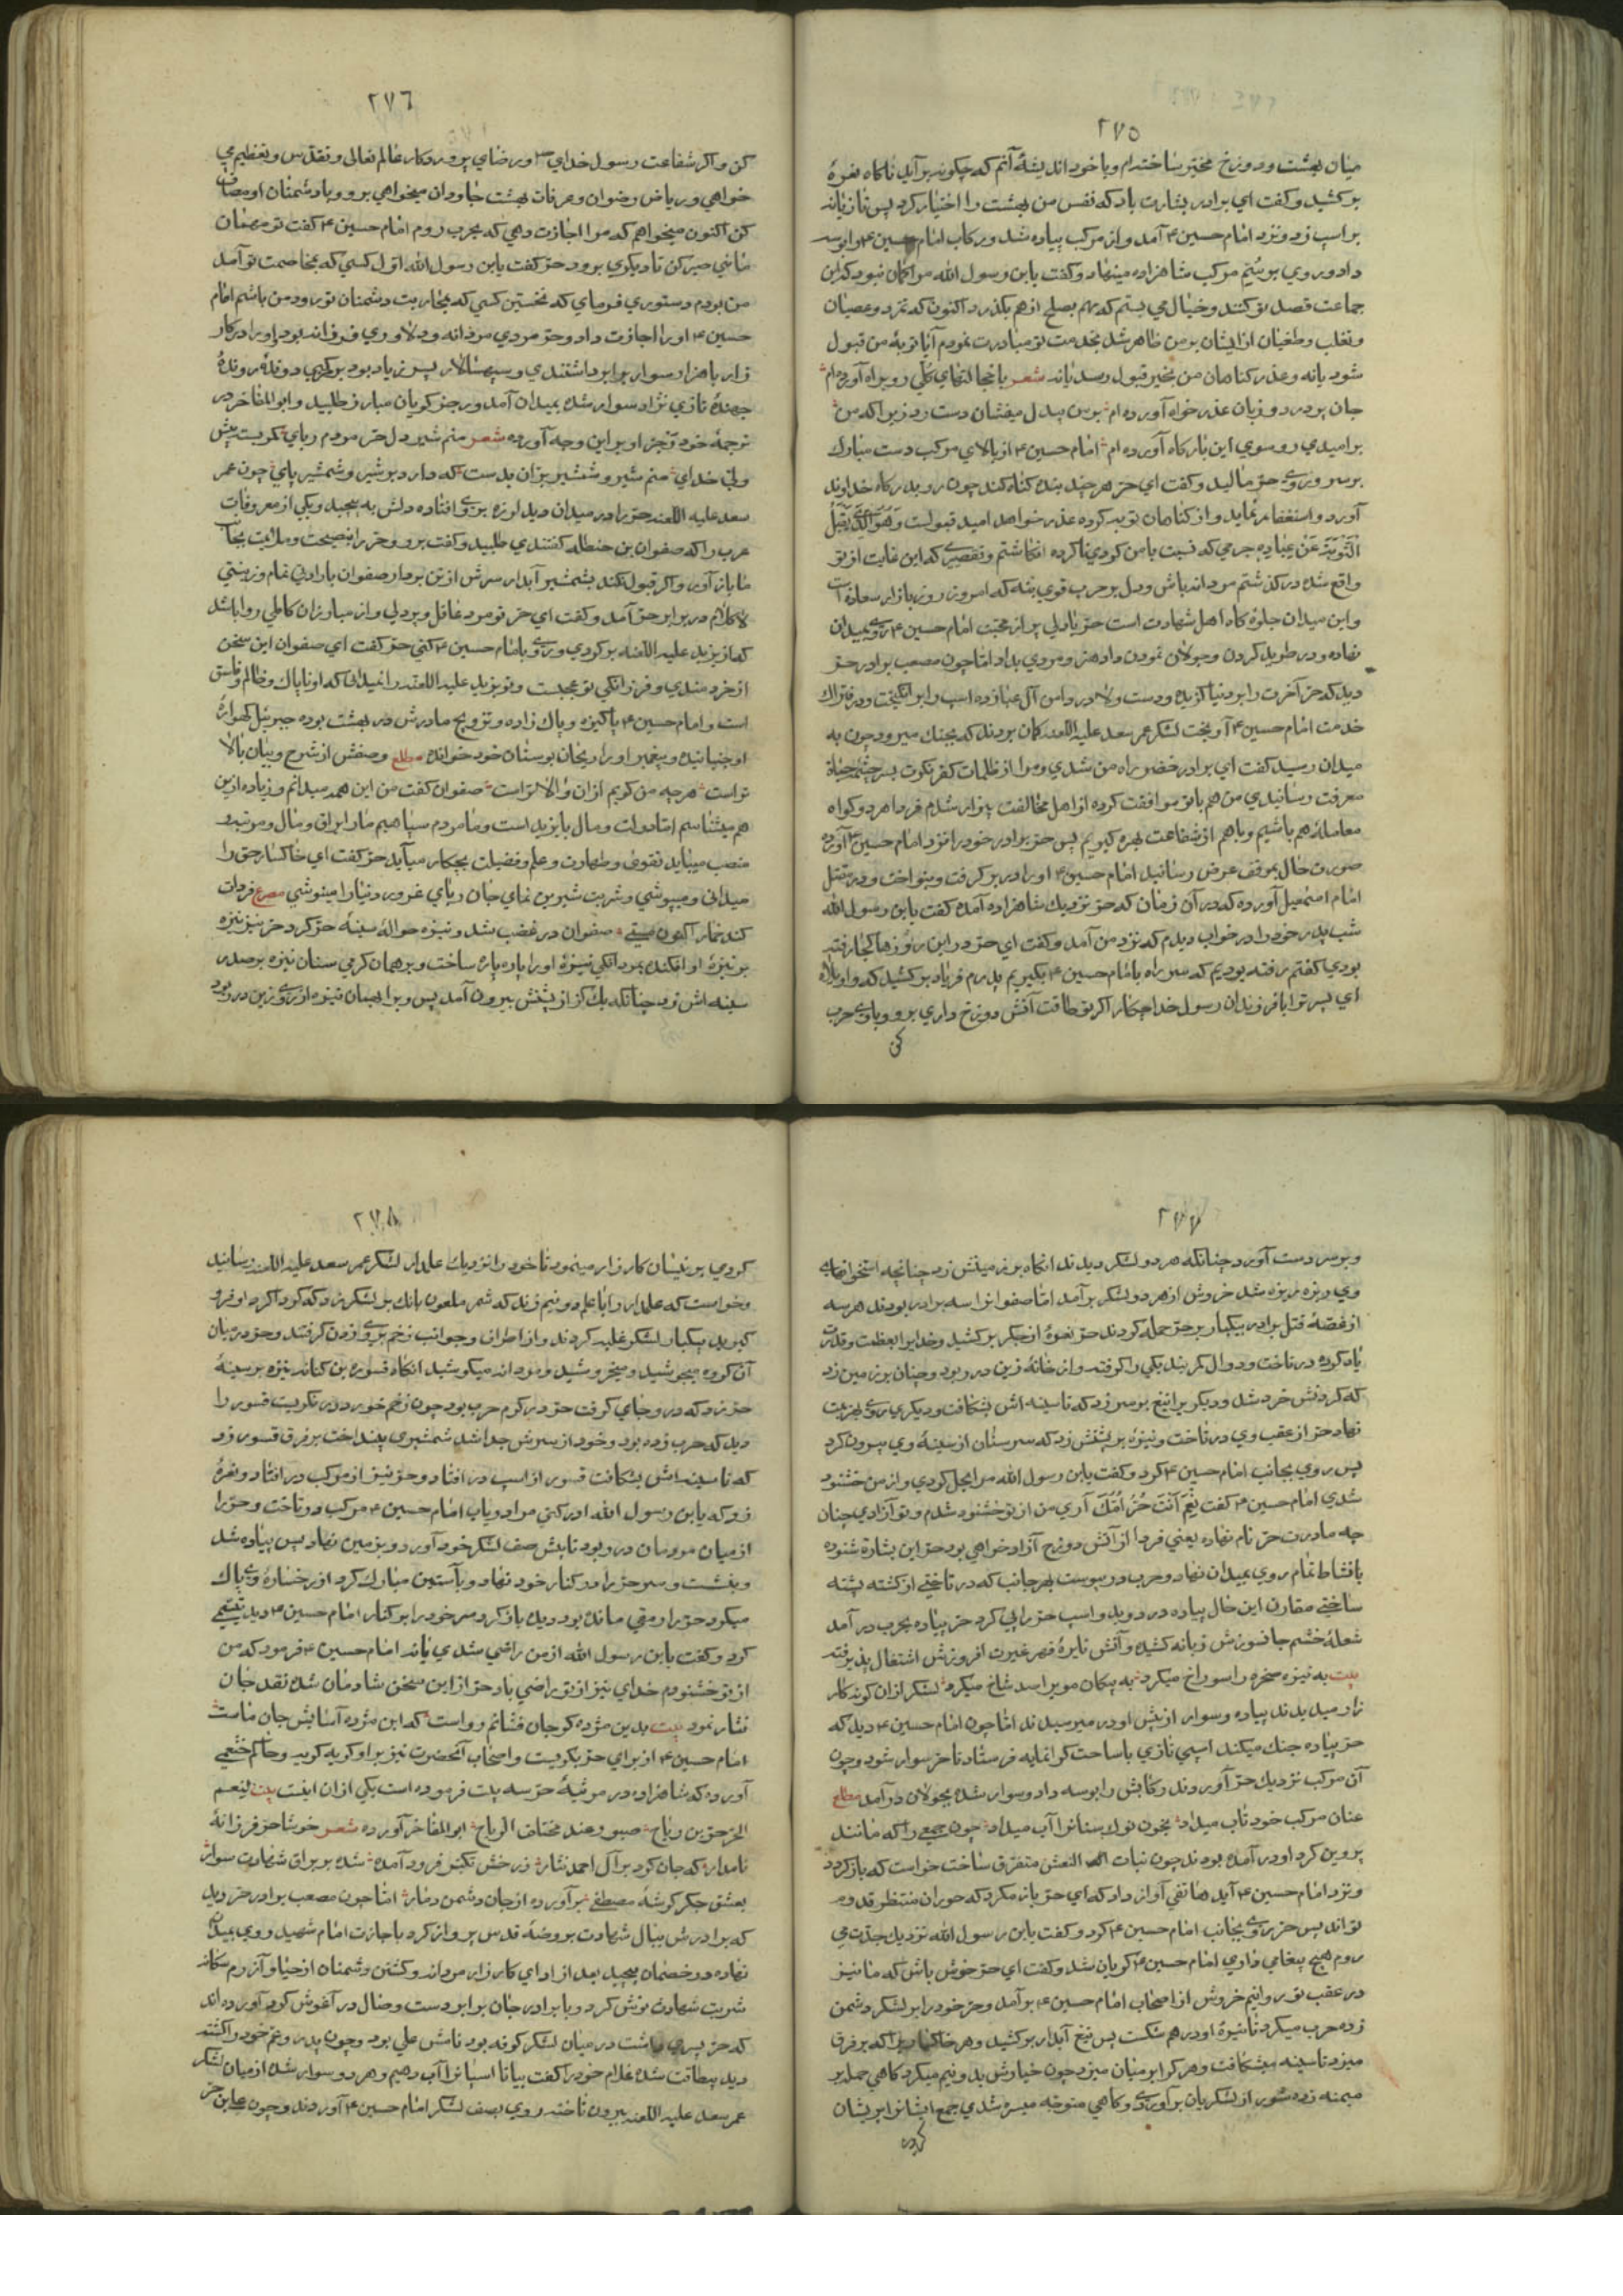 ۲۷۵
میان بهشت و دوزخ مخیر ساخته‌ام و با خود اندیشهٔ آنم که چکونه بر آید ناکاه نعرهٔ
برکشید و کفت ای برادر بشارت باد که نفس من بهشت را اختیار کرد پس تازیانه
بر اسپ زد و نزد امام حسین ۴ آمد و از مرکب پیاده شد و رکاب امام حسین ۴ را بوسه
داد و روی بر سُمّ مرکب شاهزاده مینهاد و کفت یابن رسول الله مرا کمان نبود که این
جماعت قصد تو کنند و خیال می بستم که مهم بصلح از هم بکذرد اکنون که تمرد و عصیان
و تغلب و طغیان از ایشان بر من ظاهر شد بخدمت تو مبادرت نمودم آیا توبهٔ من قبول
شود یا نه و عذر کناهان من بخیر قبول رسد یا نه شعر با خجالتهای کلی رو براه آورده‌ام
جان پر درد و زبان عذر خواه آورده ام بر من بیدل میفشان دست رد زیرا که من
بر امیدی رو سوی این بارکاه آورده ام امام حسین ۴ از بالای مرکب دست مبارک
بر سر و روی حر مالید و کفت ای حر هر چند بنده کناه کند چون رو بدرکاه خداوند
آورد و استغفار نماید و از کناهان توبه کرده عذر خواهد امید قبولست وَهُوَ الَّذی یَقْبَلُ
التَّوْبَةَ عَنْ عِبادِهِ جرمی که نسبت بامن کردی ناکرده انکاشتم و تقصیری که این غایت از تو
واقع شده درکذشتم مردانه باش و دل بر حرب قوی بنه که امروز روز بازار سعادت است
و این میدان جلوه کاه اهل شهادت است حر با دلی پر از محبت امام حسین ۴ روی بمیدان
نهاده و در طرید کردن و جولان نمودن داد هنر و مردی بداد اما چون مصعب برادر حر
دید که حر آخرت را بر دنیا کزیده و دست ولا در دامن آل عبا زده اسپ را بر انکیخت و در فتراک
خدمت امام حسین ۴ آویخت لشکر عمر سعد علیه اللعنه کمان بردند که بجنک میرود چون به
میدان رسید کفت ای برادر خضر راه من شدی و مرا از ظلمات کفر نکوت بسر چشمه حیاة
معرفت رسانیدی من هم با تو موافقت کرده از اهل مخالفت بیزار شدم فردا هر دو کواه
معاملهٔ هم باشیم و باهم از شفاعت بهره کیریم پس حر برادر خود را نزد امام حسین ۴ آورده
صورت حال بموقف عرض رسانید امام حسین ۴ او را در بر کرفت و بنواخت و در مقتل
امام اسمعیل آورده که در آن زمان که حر نزدیک شاهزاده آمده کفت یابن رسول الله
شب پدر خود را در خواب دیدم که نزد من آمد و کفت ای حر در این روزها کجا رفته
بودی کفتم رفته بودیم که سر راه بامام حسین ۴ بکیریم پدرم فریاد برکشید که واویلاه
ای پسر ترا با فرزندان رسول خدا چکار اکر تو طاقت آتش دوزخ داری برو و با وی حرب
کن
۲۷۶
کن و اکر شفاعت رسول خدای ص و رضای پروردکار عالم تعالی و تقدس و تعظیم می
خواهی و ریاض رضوان و غرفات بهشت جاودان میخواهی برو و با دشمنان او مصاف
کن اکنون میخواهم که مرا اجازت دهی که بحرب روم امام حسین ۴ کفت تو مهمان
مائی صبر کن تا دیکری برود حر کفت یابن رسول الله اول کسی که بمخاصمت تو آمد
من بودم دستوری فرمای که نخستین کسی که بمحاربت دشمنان تو رود من باشم امام
حسین ۴ او را اجازت داد و حر مردی مردانه و دلاوری فرزانه بود او را در کار
زار با هزار سوار برابر داشتندی و سپهسالار پسر زیاد بود بر مرکبی دونده رونده
جهندهٔ تازی نژاد سوار شده بمیدان آمد و رجز کویان مبارز طلبید و ابوالمفاخر در
ترجمهٔ خود رجز او بر این وجه آورده شعر منم شیر دل حر مردم ربای کمربست پیش
ولی خدای منم شیر و شمشیر بران بدست که دارد بر شیر و شمشیر پای چون عمر
سعد علیه اللعنه حر را در میدان دید لرزه بر وی افتاده دلش به پیچید و یکی از معروفات
عرب را که صفوان بن حنظله کفتندی طلبید و کفت برو و حر را بنصیحت و ملایمت بجانب
ما باز آور و اکر قبول نکند بشمشیر آبدار سرش از تن بردار صفوان با رادبی تمام و زینتی
لاکلام در برابر حر آمد و کفت ای حر تو مرد عاقل و پر دلی و از مبارزان کاملی روا باشد
که از یزید علیه اللعنه برکردی و روی بامام حسین ۴ کنی حر کفت ای صفوان این سخن
از خردمندی و فرزانکی تو عجبست و تو یزید علیه اللعنه را نمیدانی که او ناپاک و ظالم و فاسق
است و امام حسین ۴ پاکیزه و پاک زاده و تزویج مادرش در بهشت بوده جبرئیل کهوارهٔ
او جنبانیده و پیغمبر او را ریحان بوستان خود خوانده مطلع وصفش از شرح و بیان بالا
تر است هر چه من کویم ازان والاتر است صفوان کفت من این همه میدانم و زیاده ازین
هم میشناسم اما دولت و مال با یزید است و ما مردم سپاهیم مارا یراق و مال و مرتبه و
منصب میباید تقوی و طهارت و علم و فضیلت بچکار میآید حر کفت ای خاکسار حق را
میدانی و میپوشی و شربت شیرین نمای جان ربای غرور دنیا را مینوشی مصرع فردات
کند خمار اکنون مستی صفوان در غضب شد و نیزه حوالهٔ سینهٔ حر کرد حر نیز نیزه
بر نیزهٔ او افکنده بمردانکی نیزهٔ او را پاره پاره ساخت و بر همان کرمی سنان نیزه بر صدر
سینه اش زد چنانکه یک کز از پشتش بیرون آمد پس ویرا بهمان نیزه از روی زین در ربود
۲۷۷
و بر سر دست آورد چنانکه هر دو لشکر دیدند انکاه بر زمینش زد چنانچه استخوانهای
وی ریزه ریزه شد خروش از هر دو لشکر بر آمد اما صفوانرا سه برادر بودند هر سه
از غصهٔ قتل برادر بیکبار بر حر حمله کردند حر نعرهٔ از جکر برکشید و خدایرا بعظمت و قدرت
یاد کرده در تاخت و دوال کمر بند یکی را کرفته و از خانهٔ زین در ربود و چنان بر زمین زد
که کردنش خرد شد و دیکر برا تیغ بر سر زد که تا سینه اش بشکافت و دیکری روی بهزیمت
نهاد حر از عقب وی در تاخت و نیزه بر پشتش زد که سر سنان از سینهٔ وی بیرون کرد
پس روی بجانب امام حسین ۴ کرد و کفت یابن رسول الله مرا بحل کردی و از من خشنود
شدی امام حسین ۴ کفت نَعَم اَنْتَ حُرٌ اُمُّکَ آری من از تو خشنود شدم و تو آزادی چنان
چه مادرت حر نام نهاده یعنی فردا از آتش دوزخ آزاد خواهی بود حر این بشارة شنوده
با نشاط تمام روی بمیدان نهاد و حرب در پیوست بهر جانب که در تاختی از کشته پشته
ساختی مقارن این حال پیاده در دوید و اسپ حر را پی کرد حر پیاده بحرب در آمد
شعلهٔ خشم جانسوزش زبانه کشیده و آتش نایرهٔ قهر غیرت افروزش اشتعال پذیرفته
بیت به نیزه صخره را سوراخ میکرد به پیکان موی را صد شاخ میکرد لشکر ازان کونه کار
زار میدیدند پیاده و سوار از پیش او در میرمیدند اما چون امام حسین ۴ دید که
حر پیاده جنک میکند اسپی تازی با ساخت کرانمایه فرستاد تا حر سوار شود و چون
آن مرکب نزدیک حر آوردند رکابش را بوسه داد و سوار شده بجولان در آمد مطلع
عنان مرکب خود تاب میداد بخون نوک سنانرا آب میداد چون جمعی را که مانند
پروین کرد او در آمده بودند چون بنات النعش متفرق ساخت خواست که باز کردد
و نزد امام حسین ۴ آید هاتفی آواز داد که ای حر باز مکرد که حوران منتظر قدوم
تو اند پس حر روی بجانب امام حسین ۴ کرد و کفت یابن رسول الله نزدیک جدّت می
روم هیچ پیغامی داری امام حسین ۴ کریان شد و کفت ای حر خوش باش که ما نیز
در عقب تو روانیم خروش از اصحاب امام حسین ۴ بر آمد و حر خود را بر لشکر دشمن
زده حرب میکرد تا نیزهٔ او در هم شکست پس تیغ آبدار برکشید و هر خاکساریرا که بر فرق
میزد تا سینه میشکافت و هر کرا بر میان میزد چون خیارش بدو نیم میکرد کاهی حمله بر
میمنه زده شور از لشکریان بر آوردی و کاهی متوجه میسره شدی جمع ایشانرا پریشان
کردی
۲۷۸
کردی بر ینسان کارزار مینمود تا خود را نزدیک علمدار لشکر عمر سعد علیه اللعنه رسانید
و خواست که علمدار را با علم دو نیم زند که شمر ملعون بانک بر لشکر زد که کرداکرد او فرو
کیرید بیکبار لشکر غلبه کردند و از اطراف و جوانب زخم بر وی زدن کرفتند و حر در میان
آن کروه میجوشید و میخروشید و مردانه میکوشید انکاه قسوره بن کنانه نیزه بر سینهٔ
حر زد که در وجای کرفت حر در کرم حرب بود چون زخم خورد در نکریست قسور را
دید که حرب زده بود و خود از سرش جدا شد شمشیری بینداخت بر فرق قسور زد
که تا سینه اش بشکافت قسور از اسپ در افتاد و حر نیز از مرکب در افتاد و نعرهٔ
زد که یابن رسول الله ادرکنی مرا دریاب امام حسین ۴ مرکب در تاخت و حر را
از میان مردمان در ربود تا پیش صف لشکر خود آورد و بزمین نهاد پس پیاده شد
و بنشست و سر حر را در کنار خود نهاد و بآستین مبارک کرد از رخسارهٔ وی پاک
میکرد حر را رمقی مانده بود دیده باز کرد سر خود را بر کنار امام حسین ۴ دید تبسمی
کرد و کفت یابن رسول الله از من راضی شدی یا نه امام حسین ۴ فرمود که من
از تو خشنودم خدای نیز از تو راضی باد حر از این سخن شادمان شده نقد جان
نثار نمود بیت بدین مژده کر جان فشانم رواست که این مژده آسایش جان ماست
امام حسین ۴ از برای حر بکریست و اصحاب آنحضرت نیز بر او کریه کردند و حاکم خثعمی
آورده که شاهزاده در مرثیهٔ حر سه بیت فرموده است یکی ازان اینست بیت لنعم
الحر حر بن ریاح صبور عند مختلف الرماح ابوالمفاخر آورده شعر خوشا حر فرزانهٔ
نامدار که جان کرد بر آل احمد نثار ز رخش تکبر فرود آمده شده بر براق شهادت سوار
بعشق جکرکوشهٔ مصطفی بر آورده از جان دشمن دمار اما چون مصعب برادر حر دید
که برادرش ببال شهادت بروضهٔ قدس پرواز کرد باجازت امام شهید روی بمیدان
نهاده و خصمان پیچید بعد از ادای کارزار مردانه و کشتن دشمنان از حیا و آزرم بیکانه
شربت شهادت نوش کرد و با برادر جان برابر دست وصال در آغوش کرد آورده اند
که حر پسری داشت در میان لشکر کوفه بود نامش علی بود و چون پدر و عم خود را کشته
دید بیطاقت شده غلام خود را کفت بیا تا اسپانرا آب دهیم و هر دو سوار شده از میان لشکر
عمر سعد علیه اللعنه بیرون تاخته روی بصف لشکر امام حسین ۴ آوردند و چون علی بن حر